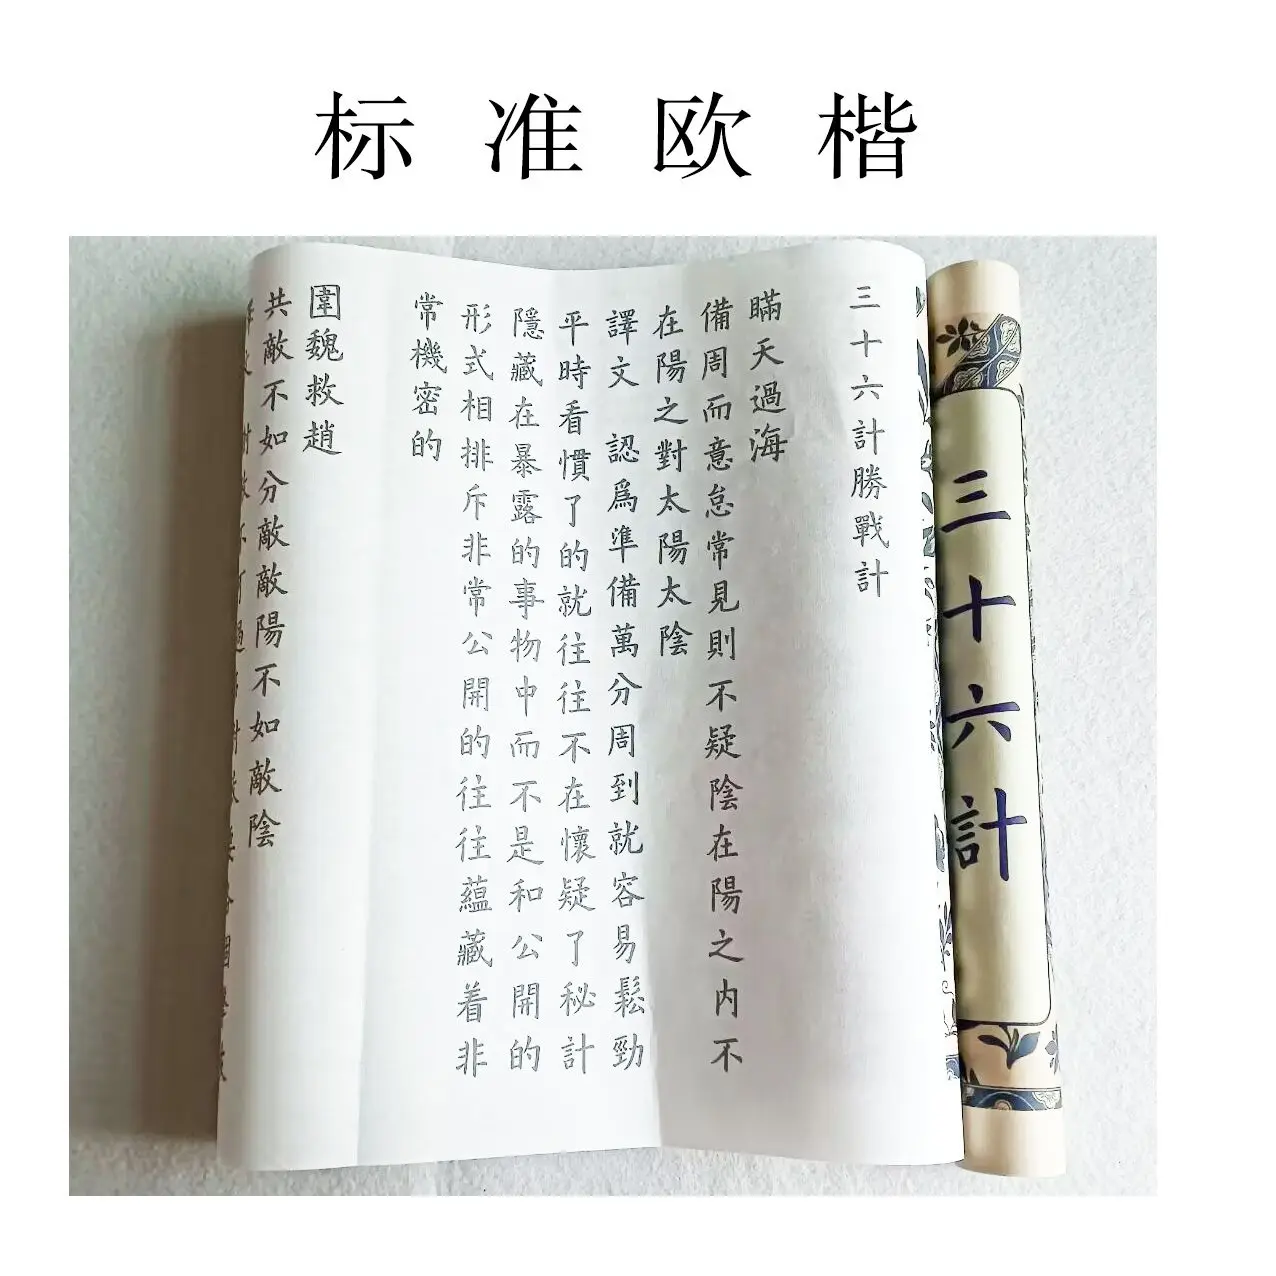 标准欧楷
三十六計
三十六計勝戰計
瞞天過海
備周而意怠常見則不疑陰在陽之内不
在陽之對太陽太陰
譯文　認爲準備萬分周到就容易鬆勁
平時看慣了的就往往不在懷疑了秘計
隱藏在暴露的事物中而不是和公開的
形式相排斥非常公開的往往蘊藏着非
常機密的
圍魏救趙
共敵不如分敵敵陽不如敵陰